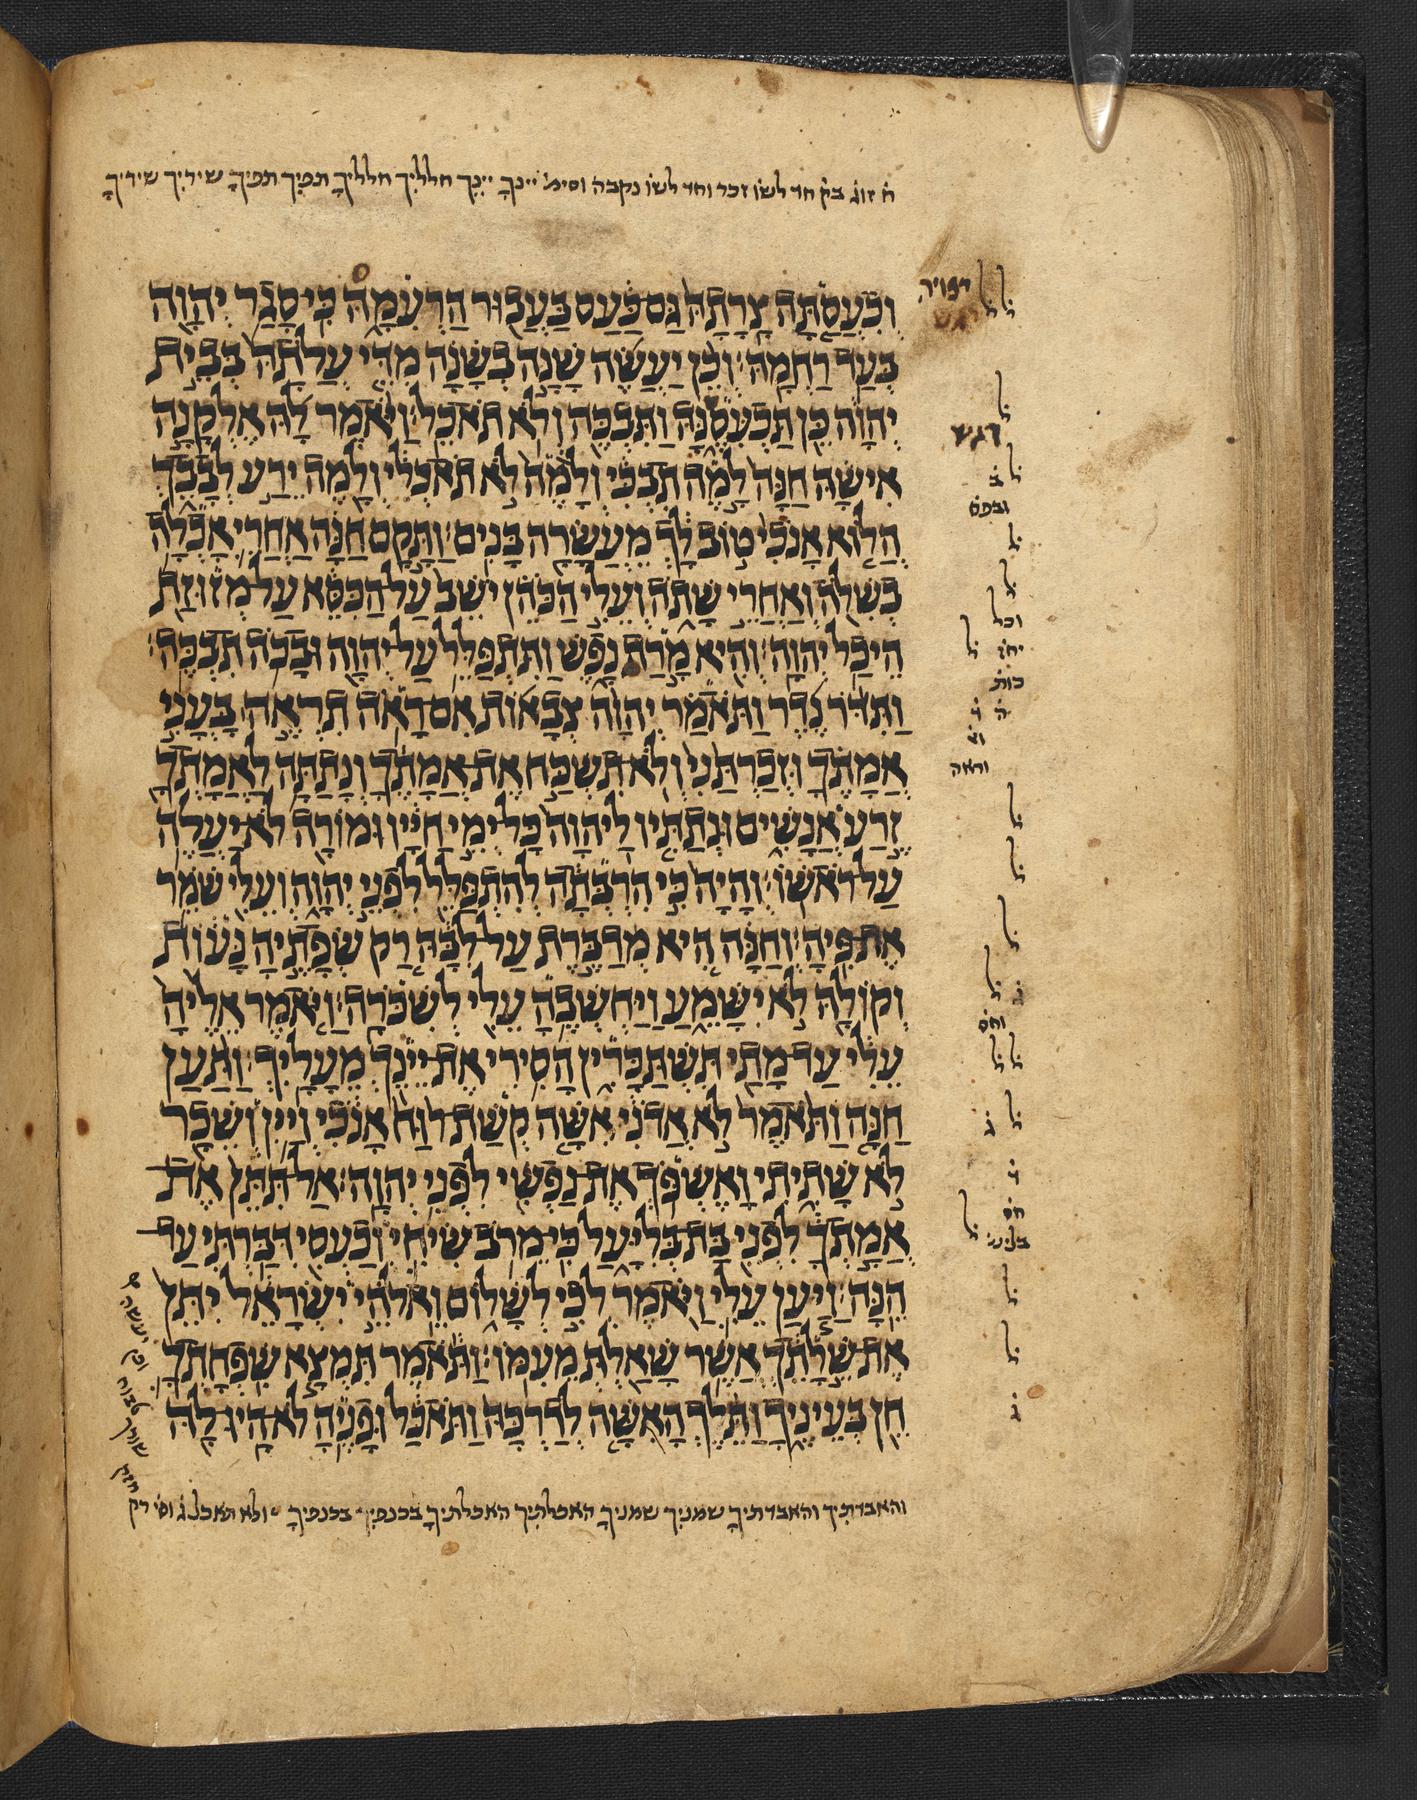 ח זוג בק חד לשו זכר וחד לשו נקבה וסימ יינך יינך חלליך חלליך תפיך תפיך שיריך שיריך
וכעסתה צרתה גם כעס בעבור הרעמה כי סגר יהוה
בעד רחמה וכן יעשה שנה בשנה מדי עלתה בבית
יהוה כן תכעסנה ותבכה ולא תאכל ויאמר לה אלקנה
אישה חנה למה תבכי ולמה לא תאכלי ולמה ירע לבבך
הלוא אנכי טוב לך מעשרה בנים ותקם חנה אחרי אכלה
בשלה ואחרי שתה ועלי הכהן ישב על הכסא על מזוזת
היכל יהוה והיא מרת נפש ותתפלל על יהוה ובכה תבכה
ותדר נדר ותאמר יהוה צבאות אם ראה תראה בעני
אמתך וזכרתני ולא תשכח את אמתך ונתתה לאמתך
זרע אנשים ונתתיו ליהוה כל ימי חייו ומורה לא יעלה
על ראשו והיה כי הרבתה להתפלל לפני יהוה ועלי שמר
את פיה וחנה היא מדברת על לבה רק שפתיה נעות
וקולה לא ישמע ויחשבה עלי לשכרה ויאמר אליה
עלי עד מתי תשתכרין הסירי את יינך מעליך ותען
חנה ותאמר לא אדני אשה קשת רוח אנכי ויין ושכר
לא שתיתי ואשפך את נפשי לפני יהוה אל תתן את
אמתך לפני בת בליעל כי מרב שיחי וכעסי דברתי עד
הנה ויען עלי ויאמר לכי לשלום ואלהי ישראל יתן
את שלתך אשר שאלת מעמו ותאמר תמצא שפחתך
חן בעיניך ותלך האשה לדרכה ותאכל ופניה לא היו לה
והאבדתיך והאבדתיך שמניך שמניך האכלתיך האכלתיך בכנפיך בכנפיך ולא תאכל ג וסי רק
דגש
וכל
וראה